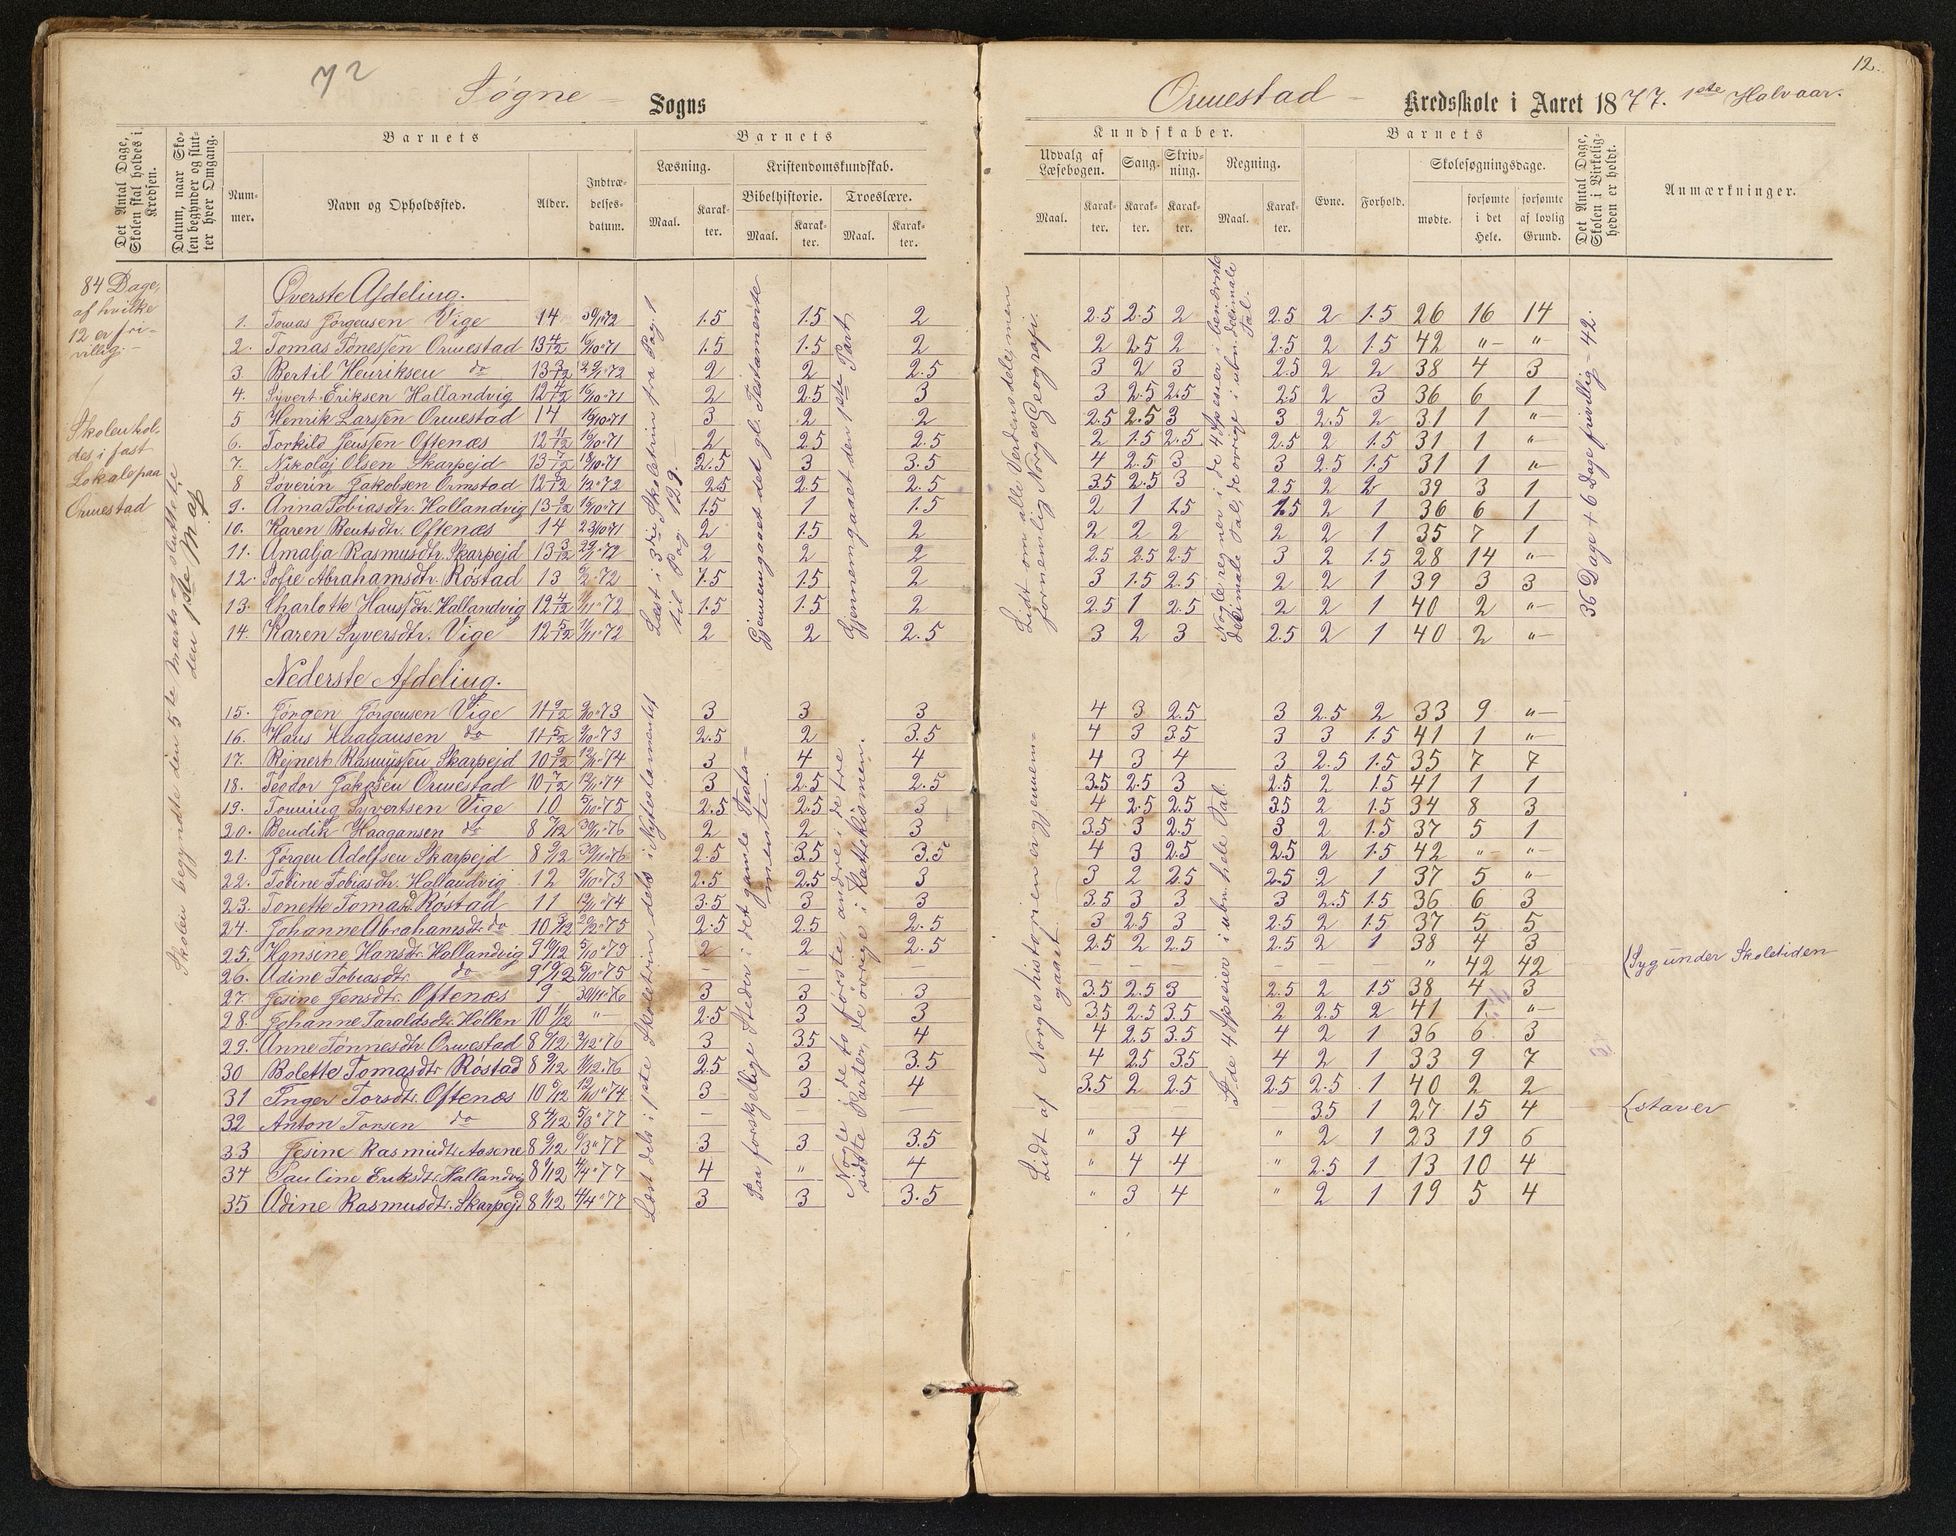 72
Søgne Sogns
Det Antal Dage, Skolen skal holdes i Kredsen.
Datum, naar Skolen begynder og slutter hver Omgang.
Barnets
Nummer.
Navn og Opholdssted.
Alder.
Indtrædelsesdatum.
Barnets
Læsning.
Maal.
Karakter.
Kristendomskundskab.
Bibelhistorie.
Maal.
Karakter.
Troeslære.
Maal.
Karakter.
84 Dage,
af hvilke
12 er fri-
villig.-
Skolen hol-
des i fast
Lokale paa
Ormestad
Skolen begyndte den 5te Marts og sluttede
den 1ste Maj
Øverste Afdeling.
1. Tomas Jørgensen Vige 14 1.5 1.5 2
2. Tomas Tönessen Ormestad 13 4/12 16/10 71 1.5 1.5 2
3 Bertil Henriksen do 13 3/12 2 2 2.5
4. Syvert Eriksen Hallandvig 12 4/12 16/10 71 2 2.5 3
5 Henrik Larssen Ormestad 14 16/10 71 3 2 2
6. Torkild Jenssen Oftenæs 12 11/12 2 2.5 2.5
7. Nikolaj Olsen Skarpejd 13 7/12 18/10 71 2.5 3 3.5
8 Søverin Jakobsen Ormstad 2.5 2.5 2.5
9. Anna Tobiasdtr. Hallandvig 13 2/12 16/10 71 1.5 1 1.5
10. Karen Bentsdtr. Oftenæs 14 23/10 71 2 1.5 2
11. Amalja Rasmusdtr. Skarpejd 13 3/12 2 2 2
12. Sofie Abrahamsdtr. Røstad 13 1.5 1.5 2
13. Charlotte Hanssdtr. Hallandvig 12 4/12 1.5 1.5 2
14. Karen Syversdtr. Vige 12 5/12 2 2 2.5
Læst i 3die Skoletrin fra Pag. 1
til Pag 129.
Gjennemgaaet det gl. Testamente
Gjennemgaaet den 1ste Part
Nederste Afdeling.
15. Jørgen Jørgensen Vige 11 9/12 3 3 3
16. Hans Haagansen do 11 5/12 2.5 2 3.5
17. Rejnert Rasmussen Skarpejd 10 9/12 3 4 4
18. Teodor Jakobsen Ormestad 10 7/12 3 2.5 2.5
19. Tønning Syvertsen Vige 10 5/10 75 2.5 2.5 3
20. Bendik Haagansen do 8 7/12 30/11 76 2 2 3
21. Jörgen Adolfsen Skarpejd 8 9/12 30/11 76 2.5 3.5 3.5
22. Tobine Tobiasdtr. Hallandvig 12 2.5 2.5 3
23. Tonette Tomasd Røstad 11 3.5 3 3
24. Johanne Abrahamsdtr. do 10 3/12 2.5 2.5 2.5
25. Hansine Hansdtr. Hallandvig 9 10/12 2 2 2.5
26. Adine Tobiasdtr. do - - -
27. Jesine Jensdtr. Oftenæs 9 30/11 76 3 3 3
28. Johanne Taraldsdtr. Høllen 10 1/12 "- 2.5 3 3
29. Anne Tønnesdtr. Ormestad 3 3.5 4
30 Bolette Tomasdtr Røstad 8 9/12 2.5 3 3.5
31 Inger Torsdtr. Oftenæs 10 5/12 3 3 4
32 Anton Torsen do 8 4/12 5/3 77 - - -
33 Jesine Rasmudtr. Aasene 8 9/12 3 3 3.5
34 Pauline Eriksdtr. Hallandvig 4 " 4
35 Adine Rasmusdtr. Skarpejd 8 1/12 4/4 77 3 3 3.5
Læst dels i 1ste Skoletrin dels i Nytestamentet
Paa forskellige Steder i det gamle Testa-
mente.
Nogle i de to første, andre i de tre
sidste Parter, de øvrige i Katekismen.
12.
Ormestad Kredsskole i Aaret 1877. 1ste Halvaar.
Kundskaber.
Udvalg af Læsebogen.
Maal.
Karakter.
Sang.
Karakter.
Skrivning.
Karakter.
Regning.
Maal.
Karakter.
Barnets
Evne.
Forhold.
Skolesøgningsdage.
mødte.
forsømte i det Hele.
forsømte af lovlig Grund.
Det Antal Dage, Skolen i Virkeligheden er holdt.
Anmærkninger.
Lidt om alle Verdensdele, men
fornemlig Norges Geografi.
Nogle regner i de 4 SpeSier i benævnte
decimale Tal, de øvrige i ubn. decimale
Tal.
36 Dage + 6 Dage frivillig = 42.
2.5 2.5 2 2.5 2 1.5 26 16 14
2 2.5 2 2.5 2 1.5 42 "- "-
3 2 3 2.5 2 2 38 4 3
3 2.5 2.5 2.5 2 3 36 6 1
2.5 2.5 3 3 2.5 2 31 1 "-
2 1.5 2.5 2.5 2 1.5 31 1 "
4 2.5 3 3 2.5 1.5 31 1 "-
3.5 2.5 3 2.5 2 2 39 3 1
2 1 1.5 1.5 2 1 36 6 1
2 2 2 2 2 1 35 7 1
2.5 2.5 2.5 3 2 1.5 28 14 "-
3 1.5 2.5 2 2 1 39 3 3
2.5 1 2.5 2 2 1 40 2 "-
3 2 3 2.5 2 1 40 2 "-
4 3 2.5 3 2.5 2 33 9 "-
4 3 3.5 3 3 1.5 41 1 "-
4 3 4 3 2.5 1.5 35 7 7
3.5 2.5 3 2.5 2 1.5 41 1 1
4 2.5 2.5 3.5 2 1.5 34 8 3
3.5 3 2.5 3 2 1.5 37 5 1
4 3 2.5 2.5 2 1.5 42 "- "-
3 2 2.5 2.5 2 1 37 5 "-
3.5 3 3 3 2.5 1.5 36 6 3
3 2.5 3 2.5 2 1.5 37 5 5
2.5 2 2.5 2.5 2 1 38 4 3
- - - - - - " 42 42 {Syg under Skoletiden
3.5 2.5 3 2.5 2 1.5 38 4 3
3.5 2.5 3.5 2 2.5 2 41 1 "-
4 2.5 3.5 4 2 1 36 6 3
4 2.5 3.5 4 2 1 33 9 7
3.5 2 2.5 2.5 2.5 1 40 2 2
3.5 1 27 15 4 {staver
" 3 4 " 2 1 23 19 6
" 4 4 " 2.5 1 13 10 4
" 3 4 " 2 1 19 5 4
Lidt af Norgeshistorien er gjennem-
gaaet.
I de 4 Spesier i ubn. hele Tal.